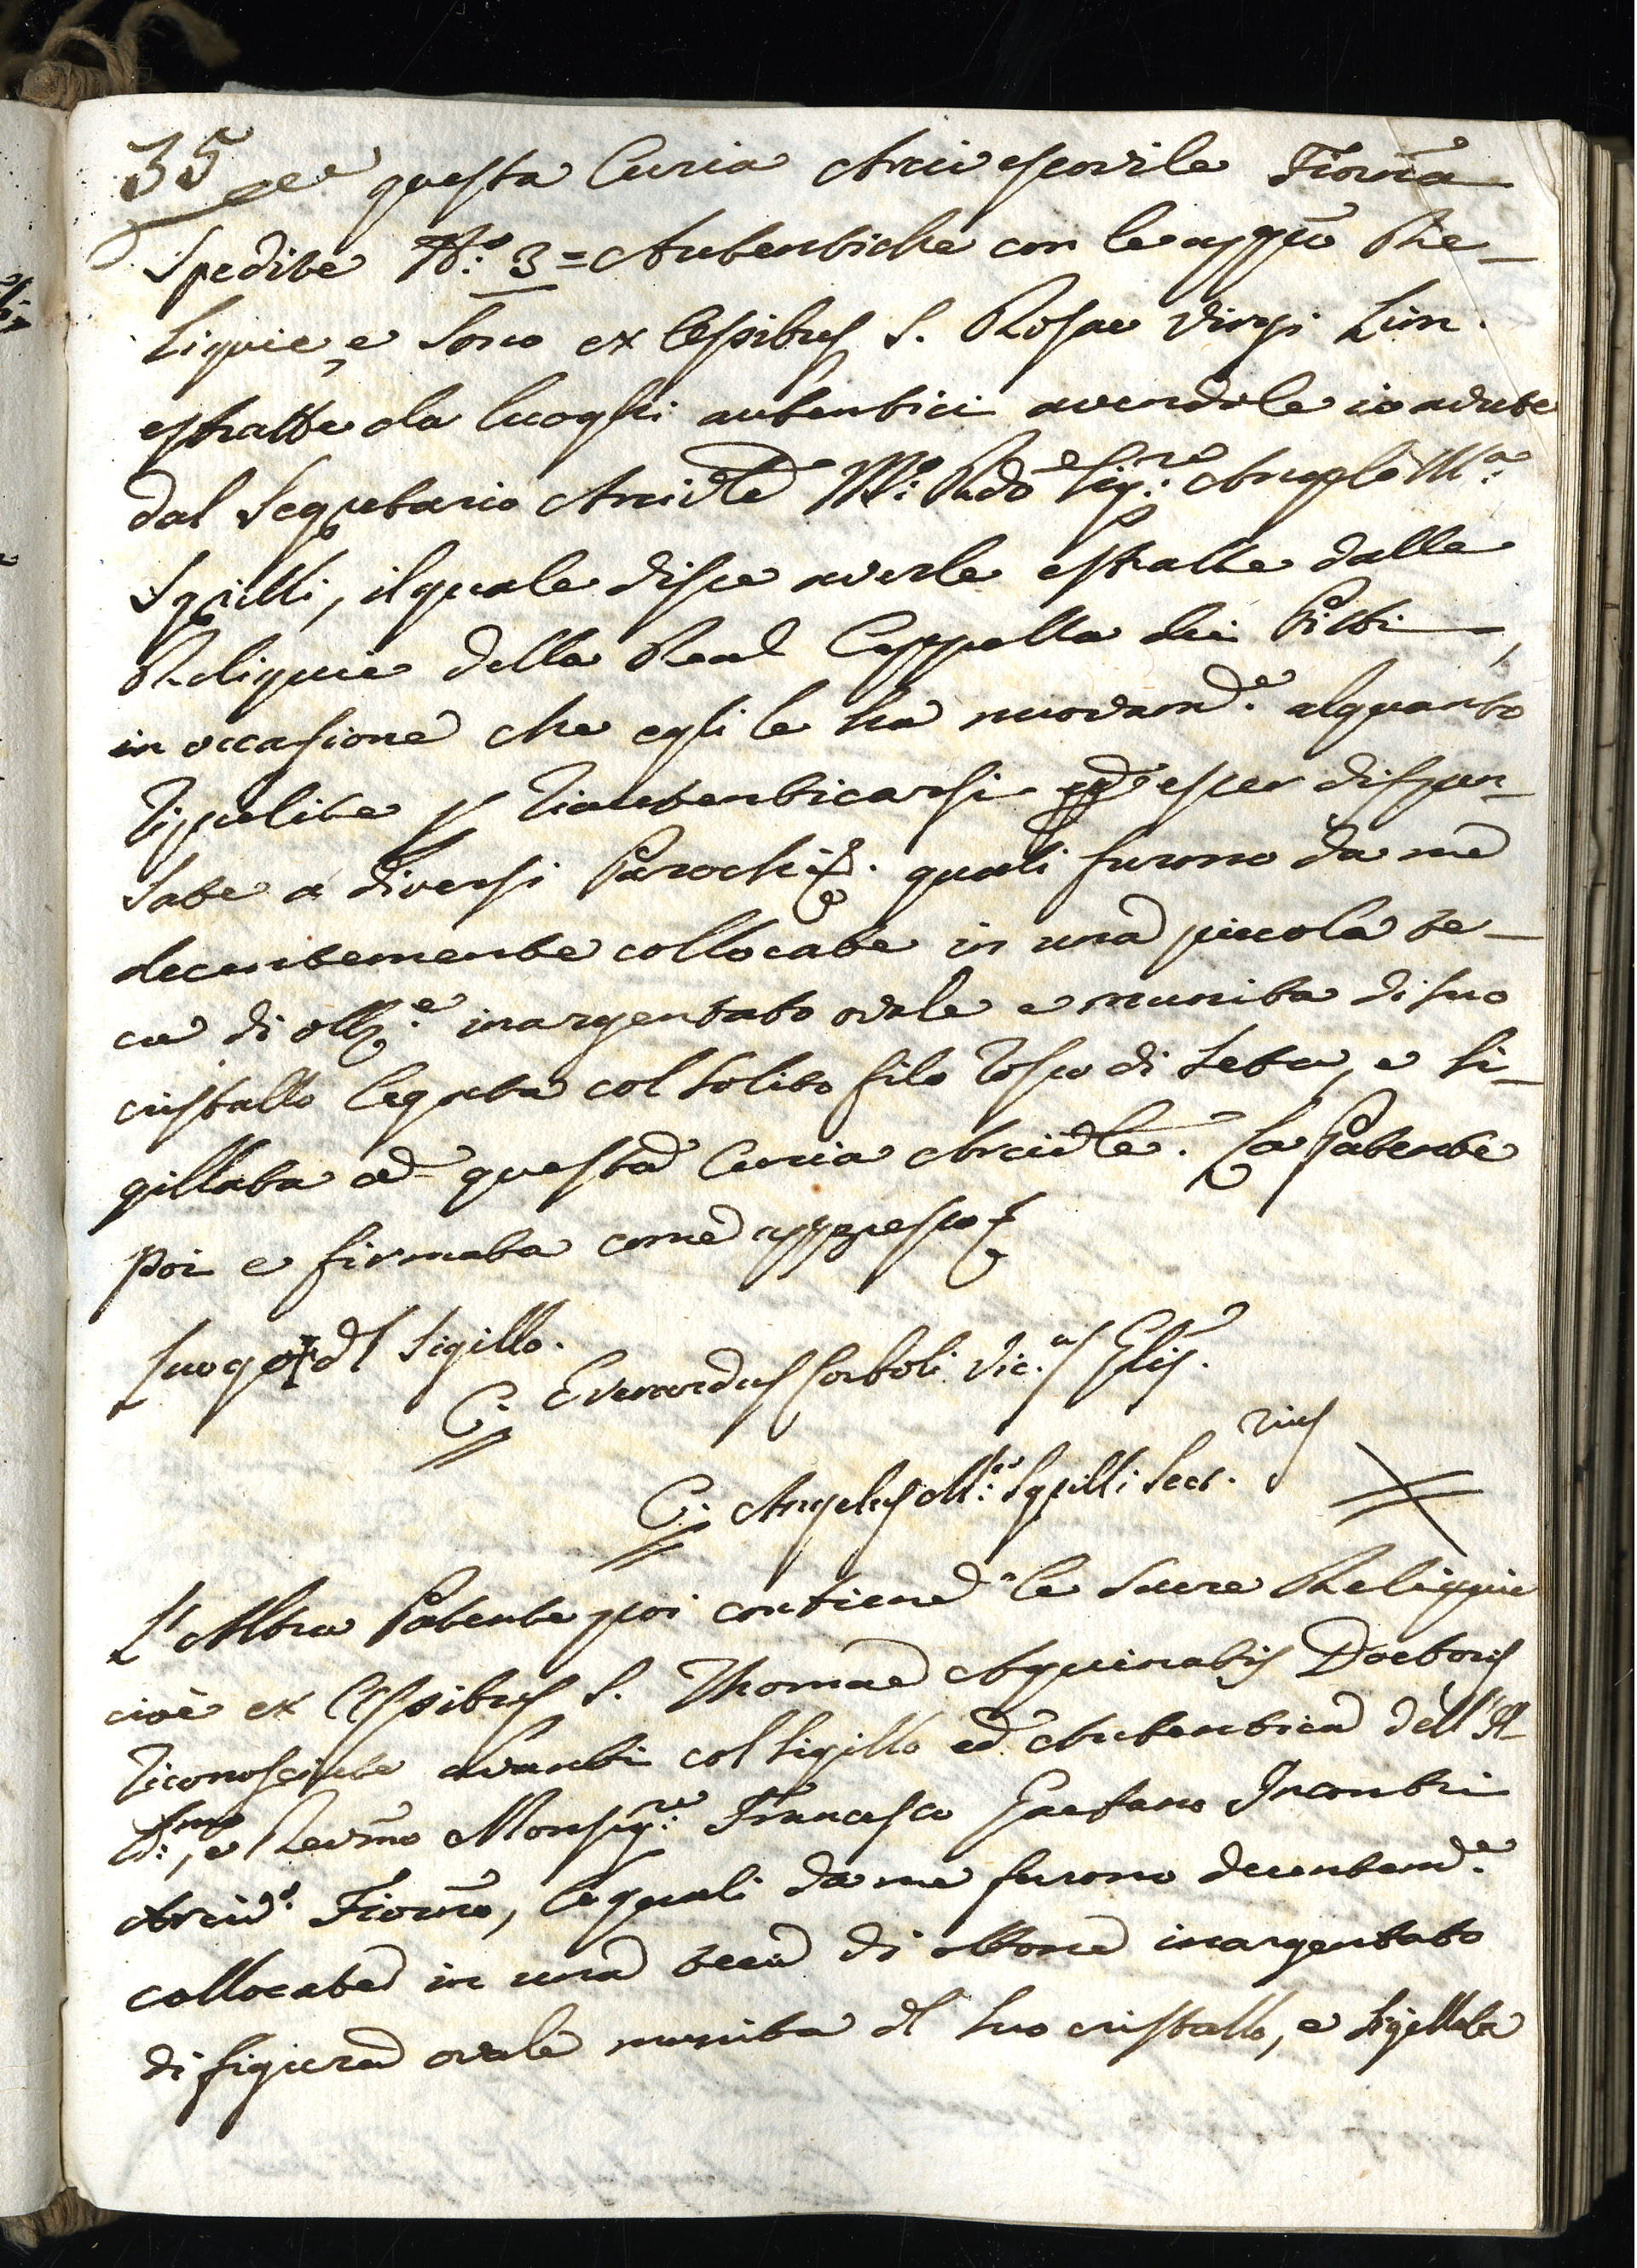 35
questa Curia Arcivescovile Fiorña
Spedite N.º 3 = Autentiche con le appñe Re-
liquie, e sono ex Cesibus S. Rosae Virgi Lim.
estratte da luoghi autentici avendole io avute
dal Segretario Arcivle M.º Rñdo Sig.re Angelo M.a
Sgrilli, il quale disse averle estratte dalle
Reliquie della Real Cappella dei Pitti,
in occasione che egli le ha nuovam.e alquanto
ripulite p riautenticarsi esser dispen-
sate a diversi Parochi quali furono da me
decentemente collocate in una piccola te-
ca di ott.e inargentato ovale e munita di suo
cristallo legata col solito filo rosso di seta, e si-
gillata a questa Curia Arcivle. La Patente
poi e firmata come appresso
Luogo + dl Sigillo.
C. Everardus Corboli Vic.us Glis.
C. Angelus M.a Sgrilli Secr.rius
L'Altra Patente poi contiene le Sacre Reliquie
cioè ex Cesibus S. Thomae Aquinatis Doctoris
riconosciute avanti col Sigillo ed Autentica dell'Il-
l.mo, e Revm̃o Monsig.re Francesco Gaetano Incontri
Arciv.o Fiorño, le quali da me furono decentem.e
collocate in una teca di ottone inargentato
di figura ovale munita dl suo cristallo, e sigillata